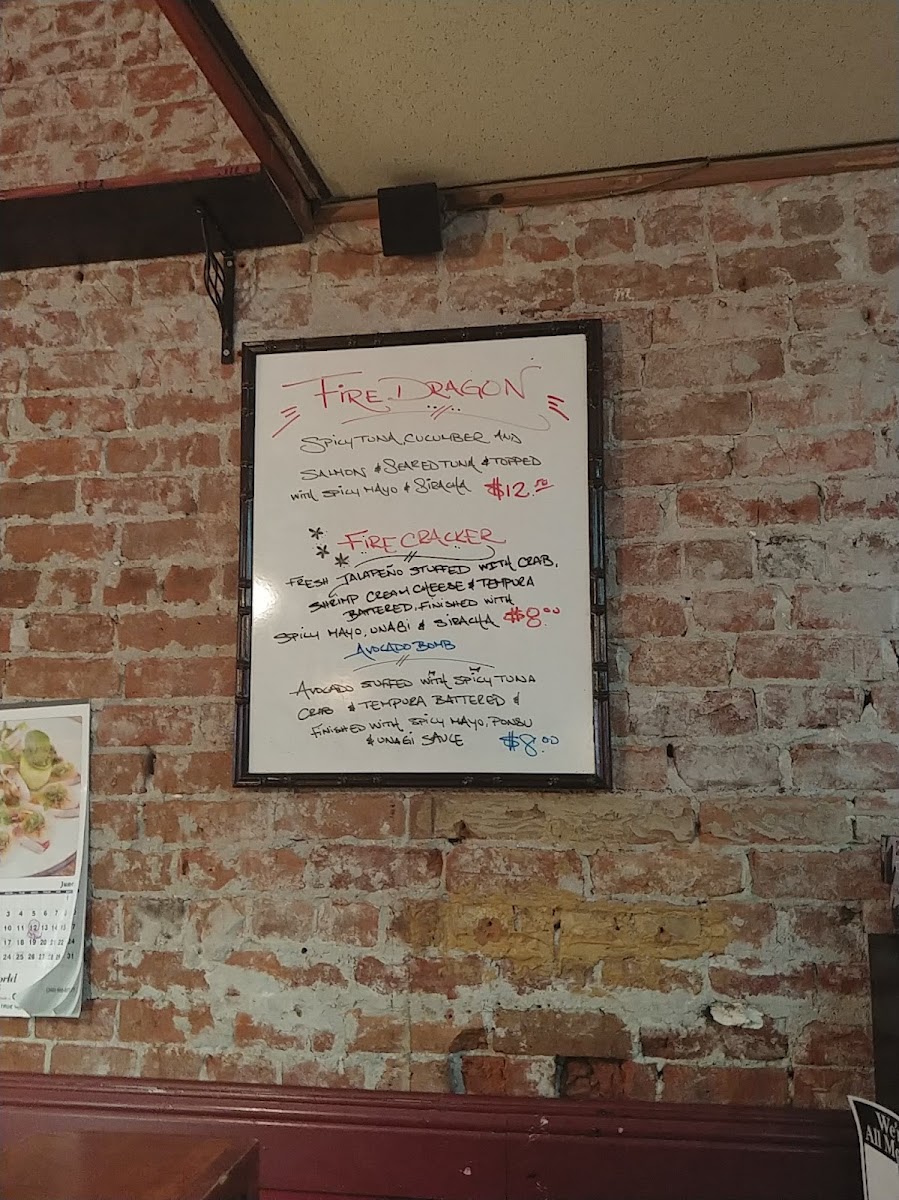 FIRE DRAGON
SPICY TUNA, CUCUMBER AND
SALMON & SEARED TUNA & TOPPED
WITH SPICY MAYO & SIRACHA $12.50
FIRE CRACKER
FRESH JALAPEÑO STUFFED WITH CRAB,
SHRIMP CREAM CHEESE & TEMPURA
BATTERED, FINISHED WITH
SPICY MAYO, UNAGI & SIRACHA $8.00
AVOCADO BOMB
AVOCADO STUFFED WITH SPICY TUNA
CRAB & TEMPURA BATTERED &
FINISHED WITH SPICY MAYO, PONSU
& UNAGI SAUCE $8.00
June
3 4 5 6 7 8
10 11 12 13 14 15
17 18 19 20 21 22
24 25 26 27 28
31
We're
All Me